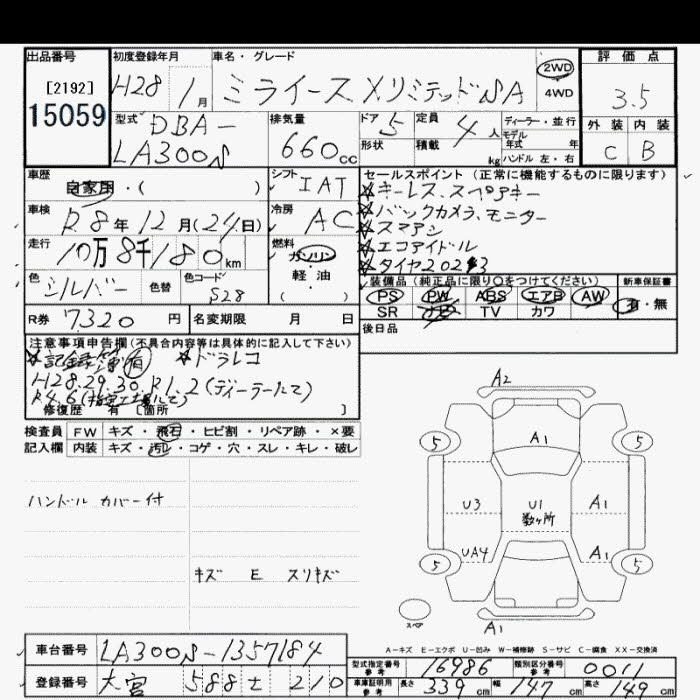 出品番号
[2192]
15059
初度登録年月
H28 1月
車名・グレード
ミライース Xリミテッド SA
2WD
4WD
評価点
3.5
外装 内装
C B
型式
DBA-
LA300S
排気量
660cc
ドア 5
定員 4人
形状
積載 kg
ディーラー・並行
モデル
年式 年
ハンドル 左・右
車歴
自家用・( )
シフト IAT
車検
R8年12月(24日)
冷房 AC
走行
10万8千180km
燃料
ガソリン
軽・油
( )
色
シルバー
色替
色コード
S28
セールスポイント(正常に機能するものに限ります)
☆キーレス、スペアキー
☆バックカメラ、モニター
☆スマアシ
☆エコアイドル
☆タイヤ2023
装備品(純正品に限り○をつけてください)
PS PW ABS エアB AW
SR ナビ TV カワ
新車保証書
有・無
後日品
R券 7320円
名変期限 月 日
注意事項申告欄(不具合内容等は具体的に記入して下さい)
☆記録簿有 ☆ドラレコ
H28.29.30.R1.2(ディーラーにて)
R4.6(指定工場にて)
修復歴 有[箇所 ]
検査員 FW キズ・飛石・ヒビ割・リペア跡・×要
記入欄 内装 キズ・汚レ・コゲ・穴・スレ・キレ・破レ
ハンドルカバー付
キズ E スリキズ
A2
5 A1 5
U3 U1 A1
数ヶ所
UA4 A1
5 5
スペア
A1
A-キズ E-エクボ U-凹み W-補修跡 S-サビ C-腐食 XX-交換済
車台番号 LA300S-1357184
登録番号 大宮 588 せ 210
型式指定番号
参考
16986
類別区分番号
参考
0011
車庫証明用
参考
長さ 339cm 幅 147cm 高さ 149cm